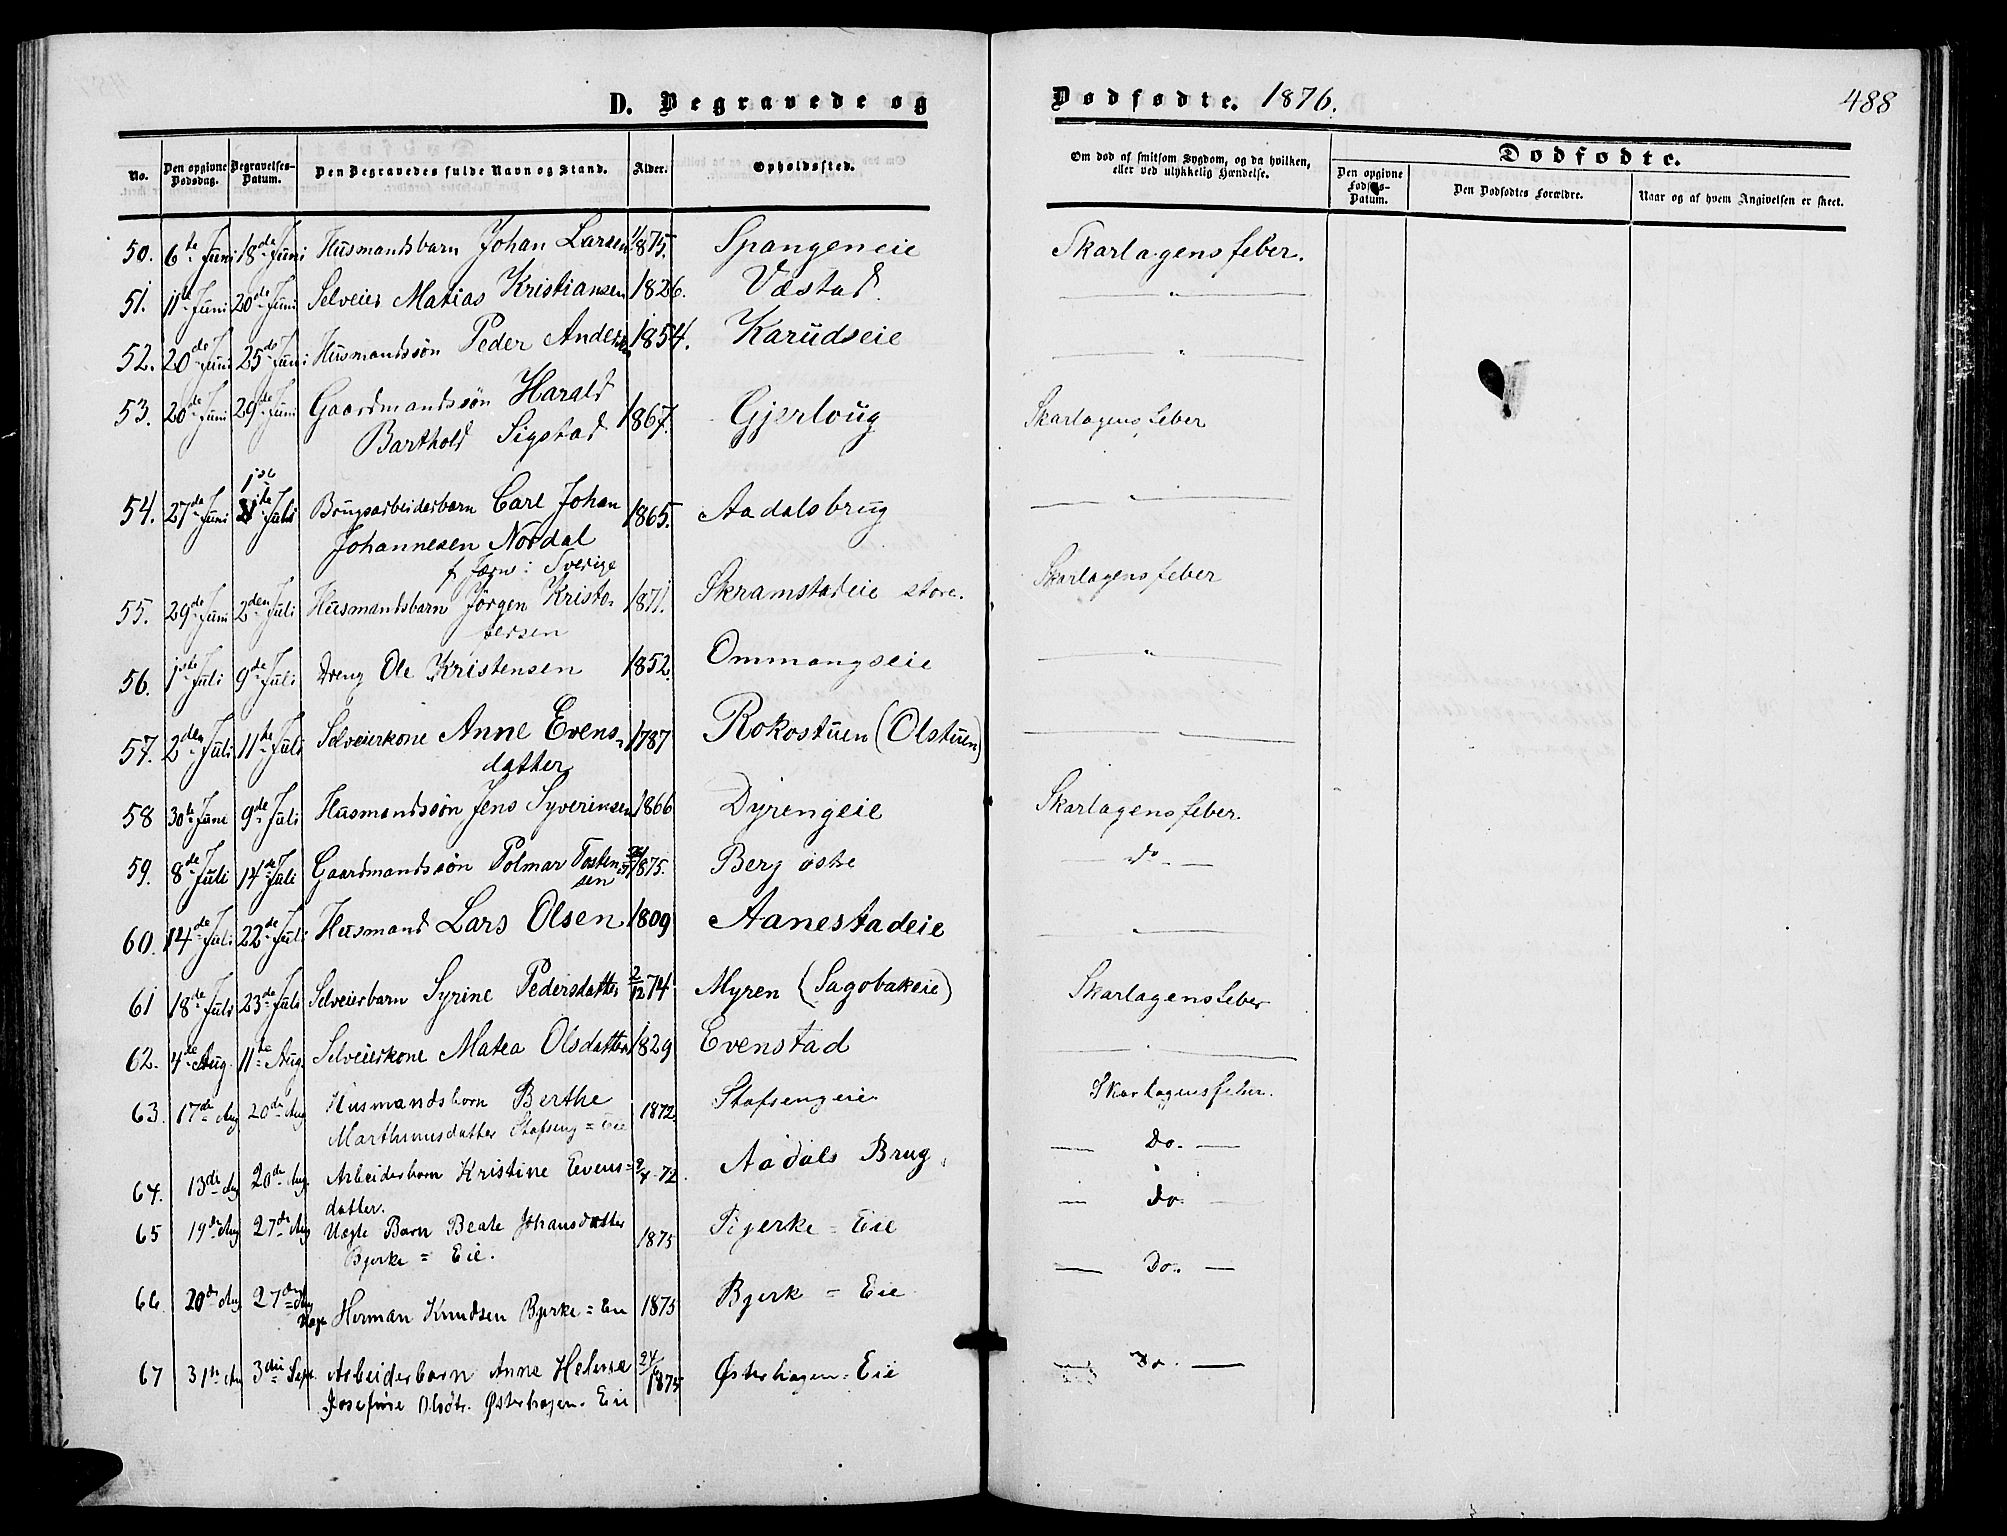 D. Begravede og
Dødfødte. 1876.
488
No.
Den opgivne Dødsdag.
Begravelses-Datum.
Den Begravedes fulde Navn og Stand.
Alder.
Opholdssted.
Om død af smitsom Sygdom, og da hvilken,
eller ved ulykkelig Hændelse.
Dødfødte.
Den opgivne Fødsels-Datum.
Den Dødfødtes Forældre.
Naar og af hvem Angivelsen er skeet.
50. 6te Juni 18de Juni Husmandsbarn Johan Larsen 1875. Spangeneie Skarlagensfeber.
51. 11te Juni 20de Juni Selveier Matias Kristiansen 1826. Væstad. — " —
52. 20de Juni 25de Juni Husmandssøn Peder Andersen 1854. Karudseie — " —
53. 20de Juni 29de Juni Gaardmandssøn Harald 1867. Gjerloug Skarlagensfeber
Barthold Sigstad
54. 27de Juni 1ste Juli Brugsarbeiderbarn Carl Johan 1865. Aadalsbrug — " —
Johannesen Nordal
f. Jærn: Sverige
55. 29de Juni 2den Juli Husmandsbarn Jörgen Kristo- 1871. Skramstadeie store. Skarlagensfeber
fersen
56. 1ste Juli 9de Juli Dreng Ole Kristensen 1852. Ommangseie — " —
57. 2den Juli 11te Juli Selveierkone Anne Evens- 1787 Rokostuen (Olstuen) — " —
datter
58 30te June 9de Juli Husmandssøn Jens Syverinsen 1866 Dyrengeie Skarlagensfeber.
59. 8de Juli 14de Juli Gaardmandssøn Polmar Tosten- 1875. Berg östre — Do —
sen
60. 14de Juli 22de Juli Husmand Lars Olsen 1809 Aanestadeie — " —
61 18de Juli 23de Juli Selveierbarn Syrine Pedersdatter 2/12 74 Myren (Sagobakeie) Skarlagensfeber
62. 4de Aug. 11te Aug. Selveierkone Matea Olsdatter 1829 Evenstad — " —
63. 17de Aug 20de Aug Husmandsbarn Berthe 1872. Stafsengeie Skarlagensfeber.
Marthinusdatter Stafseng = Eie
— Do. —
64. 13de Aug 20de Aug. Arbeiderbarn Kristine Evens= 9/4-72. Aadals Brug.
datter.
— Do. —
65 19de Aug 27de Aug Uægte Barn Beate Johansdatter 1875 Bjerke = Eie
Bjerke = Eie.
— Do. —
66. 20de Aug 27de Aug Uægt Herman Knudsen Bjerke = Eie 1875 Bjerk = Eie
67 31te Au 3die Sept. Arbeiderbarn Anne Helene 24/6 1875 Østerhagen = Eie — Do. —
Josefine Olsdtr. Østerhagen. Eie